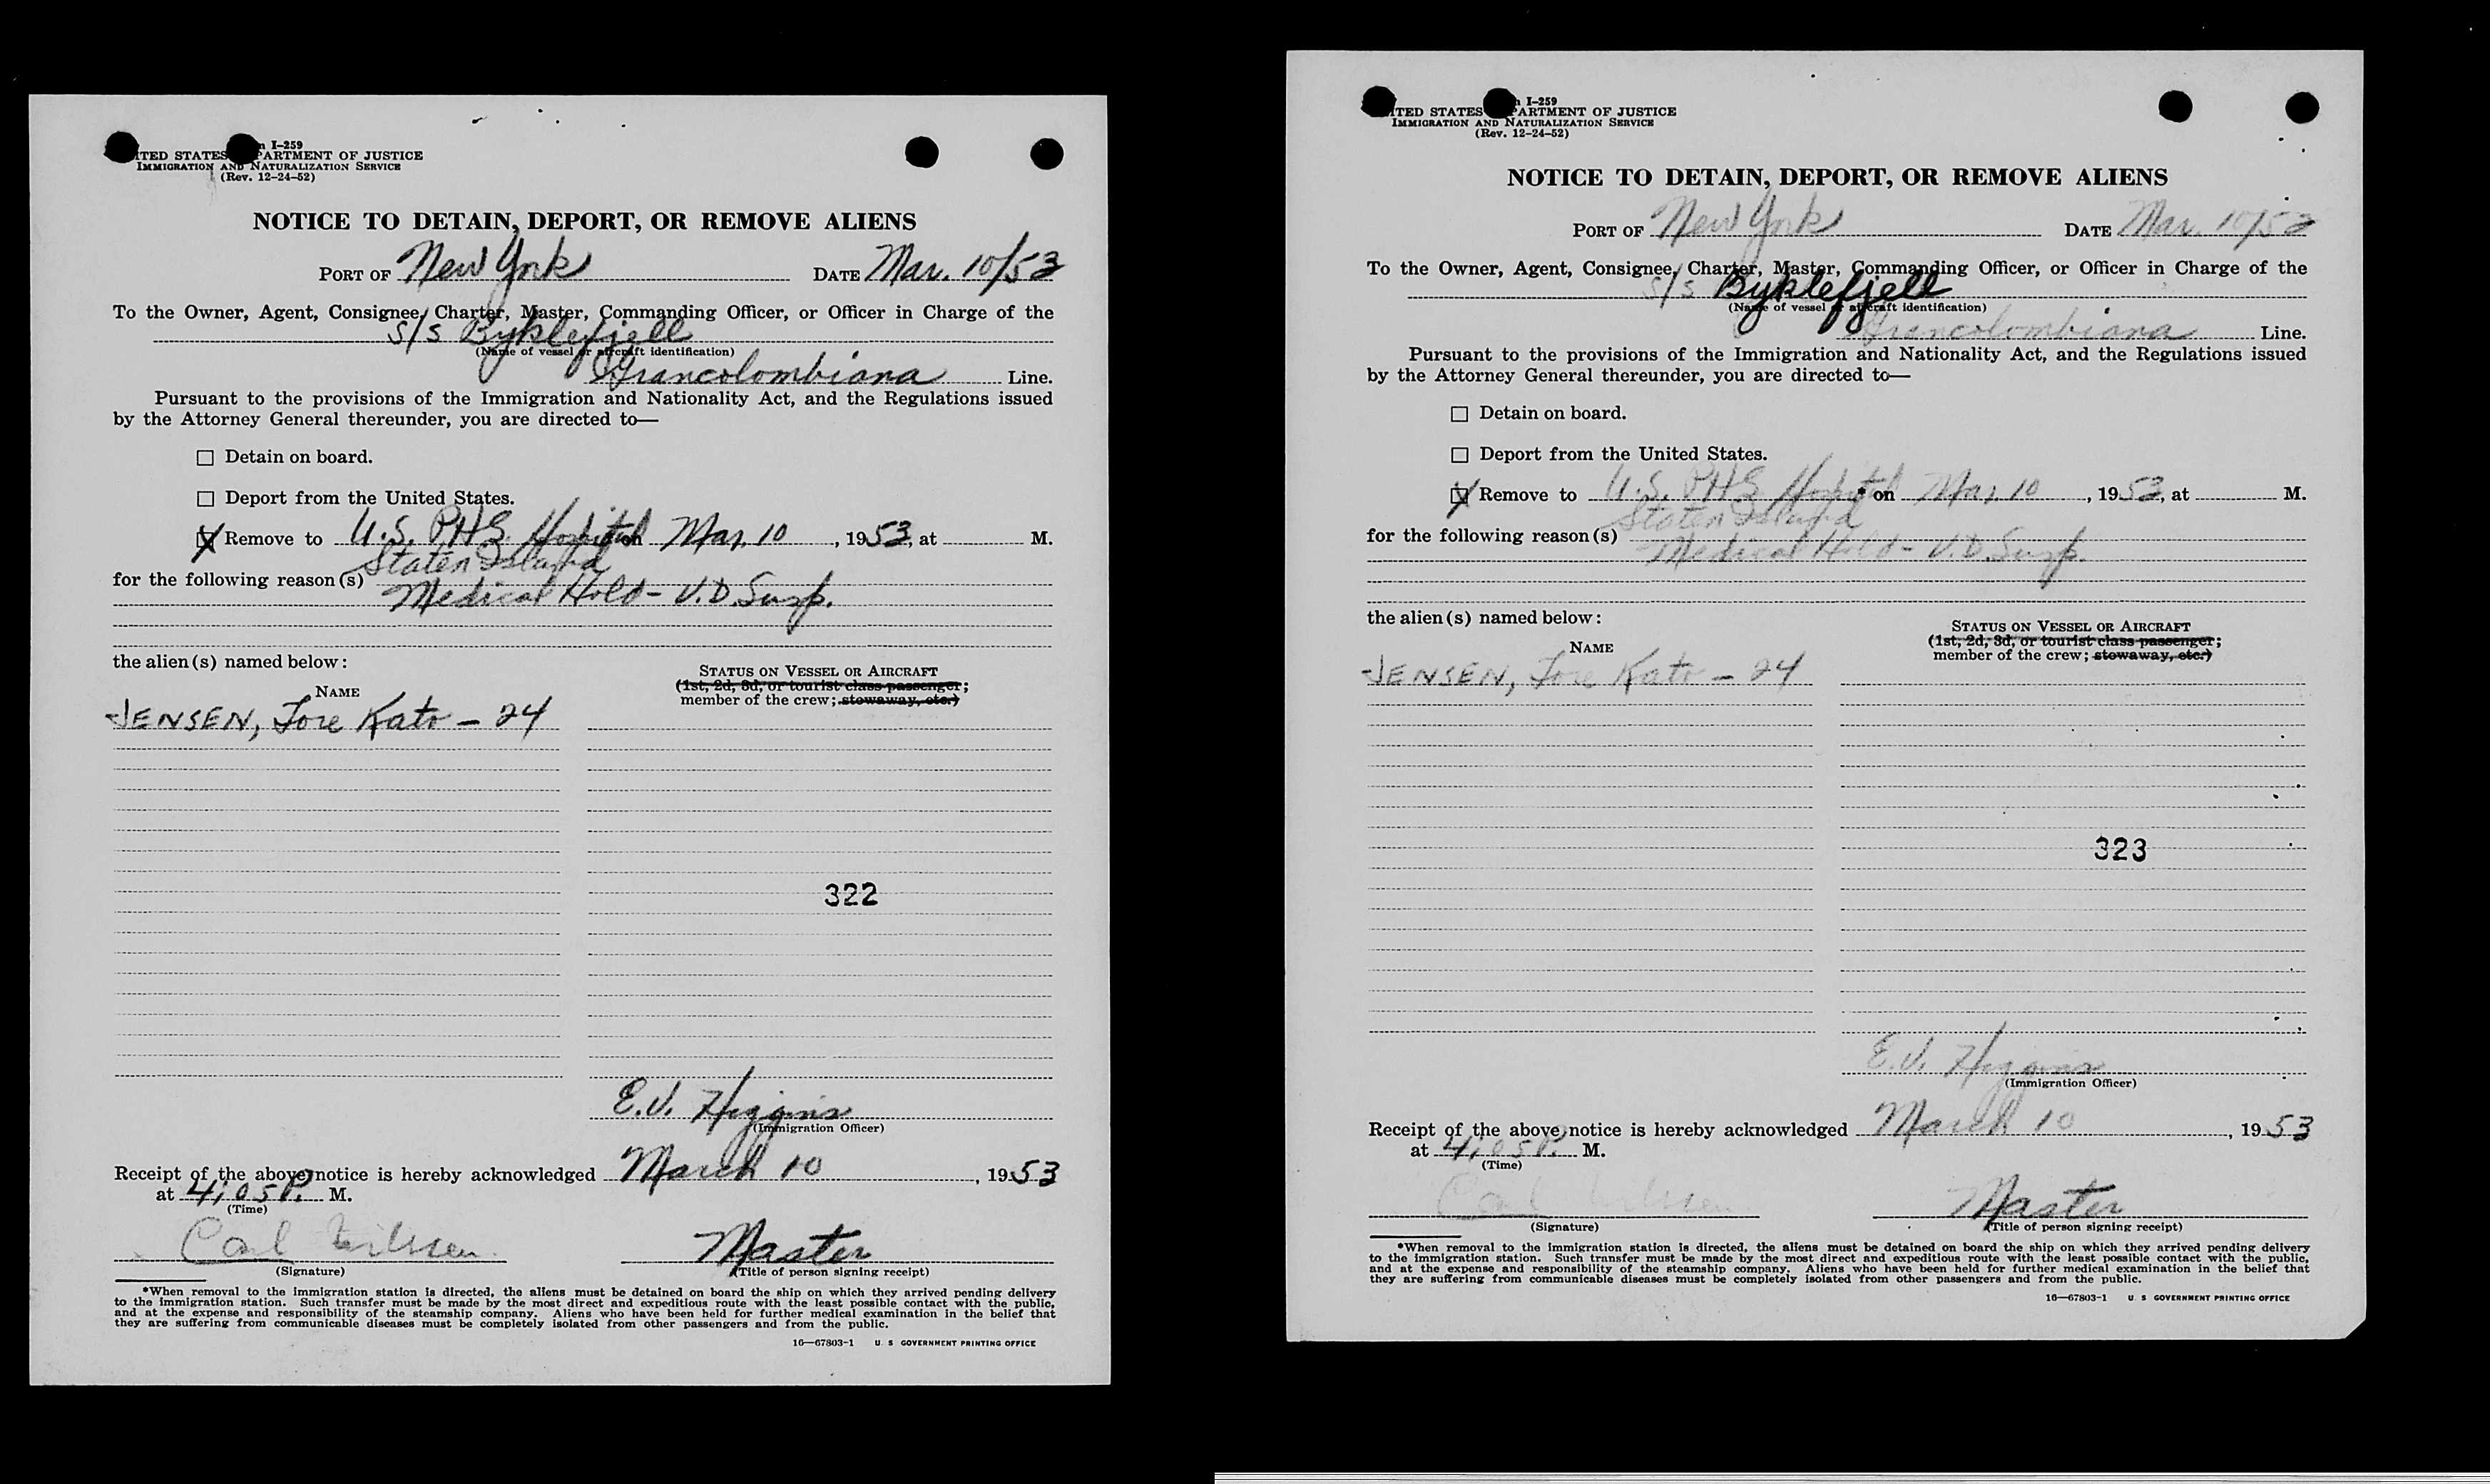 I-259
ITED STATES PARTMENT OF JUSTICE
IMMIGRATION AND NATURALIZATION SERVICE
(Rev. 12-24-52)
NOTICE TO DETAIN, DEPORT, OR REMOVE ALIENS
PORT OF New York DATE Mar. 10/53
To the Owner, Agent, Consignee, Charter, Master, Commanding Officer, or Officer in Charge of the
S/S Byklefjell
(Name of vessel or aircraft identification)
Grancolombiana Line.
Pursuant to the provisions of the Immigration and Nationality Act, and the Regulations issued
by the Attorney General thereunder, you are directed to—
☐ Detain on board.
☐ Deport from the United States.
☒ Remove to U.S. PHS Hospital on Mar. 10, 1953, at M.
Staten Island
for the following reason(s)
Medical Hold - V.D. Susp.
the alien(s) named below:
NAME
STATUS ON VESSEL OR AIRCRAFT
(1st, 2d, 3d, or tourist class passenger;
member of the crew; stowaway, etc.)
JENSEN, Tore Kato - 24
322
E.V. Higgins
(Immigration Officer)
Receipt of the above notice is hereby acknowledged March 10, 1953
at 4:05 P. M.
(Time)
Carl
(Signature)
Master
(Title of person signing receipt)
*When removal to the immigration station is directed, the aliens must be detained on board the ship on which they arrived pending delivery
to the immigration station. Such transfer must be made by the most direct and expeditious route with the least possible contact with the public,
and at the expense and responsibility of the steamship company. Aliens who have been held for further medical examination in the belief that
they are suffering from communicable diseases must be completely isolated from other passengers and from the public.
16—67803-1 U. S GOVERNMENT PRINTING OFFICE
I-259
ITED STATES PARTMENT OF JUSTICE
IMMIGRATION AND NATURALIZATION SERVICE
(Rev. 12-24-52)
NOTICE TO DETAIN, DEPORT, OR REMOVE ALIENS
PORT OF New York DATE Mar. 10/53
To the Owner, Agent, Consignee, Charter, Master, Commanding Officer, or Officer in Charge of the
S/S Byklefjell
(Name of vessel or aircraft identification)
Grancolombiana Line.
Pursuant to the provisions of the Immigration and Nationality Act, and the Regulations issued
by the Attorney General thereunder, you are directed to—
☐ Detain on board.
☐ Deport from the United States.
☒ Remove to U.S. PHS Hospital * on Mar. 10, 1953, at M.
Staten Island
for the following reason(s)
Medical Hold - V.D. Susp.
the alien(s) named below:
NAME
STATUS ON VESSEL OR AIRCRAFT
(1st, 2d, 3d, or tourist class passenger;
member of the crew; stowaway, etc.)
JENSEN, Tore Kato - 24
323
E.V. Higgins
(Immigration Officer)
Receipt of the above notice is hereby acknowledged March 10, 1953
at 4:05 P. M.
(Time)
Carl
(Signature)
Master
(Title of person signing receipt)
*When removal to the immigration station is directed, the aliens must be detained on board the ship on which they arrived pending delivery
to the immigration station. Such transfer must be made by the most direct and expeditious route with the least possible contact with the public,
and at the expense and responsibility of the steamship company. Aliens who have been held for further medical examination in the belief that
they are suffering from communicable diseases must be completely isolated from other passengers and from the public.
16—67803-1 U. S GOVERNMENT PRINTING OFFICE